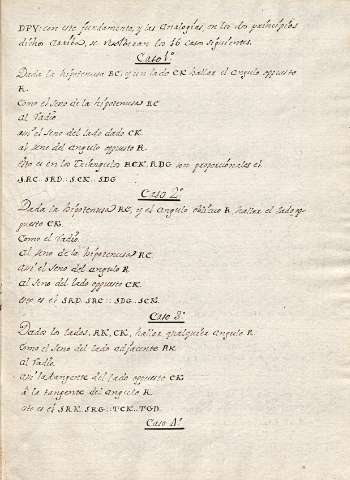 DPV: con este fundamento, y las Analogías, en los dos principios
dichos Casos, se resolveran los 16 casos siguientes.
Caso 1º
Dada la hipotenusa RC, y un lado CK hallar el angulo opuesto
R.
Como el Seno de la hipotenusa RC
al Radio
asi el seno del lado dado CK
al seno del angulo opuesto R.
Esto es en los Triangulos RCK, RDG son proporcionales el
S.RC : S.RD :: S.CK : S.DG
Caso 2º
Dada la hipotenusa RC, y el angulo oblicuo R, hallar el lado op-
puesto CK.
Como el Radio.
al seno de la hipotenusa RC
asi el seno del angulo R
al seno del lado opuesto CK.
Esto es el S.RD. S.RC :: S.DG. S.CK.
Caso 3º
Dados los lados, RK, CK, hallar qualquiera angulo R.
Como el seno del lado adjacente RK
al Radio.
asi la tangente del lado opuesto CK
à la tangente del angulo R
esto es el S.RK. S.RG :: T.CK. T.GD.
Caso 4º